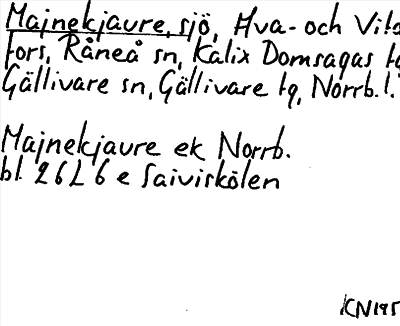 Majnekjaure, sjö, Hva- och Vita
fors, Råneå sn, Kalix Domsagas tg
Gällivare sn, Gällivare tg, Norrb. l.
Majnekjaure ek Norrb.
bl 26L 6 e Saiviskölen
KN 195